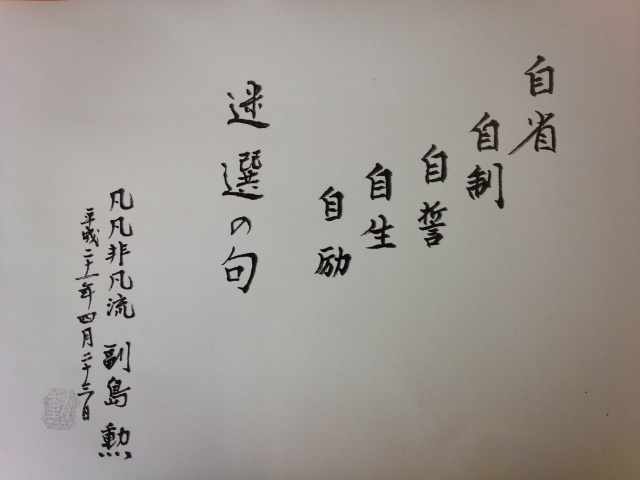 自省
自制
自誓
自生
自励
迷選の句
凡凡非凡流 副島勲
平成二十一年四月二十三日